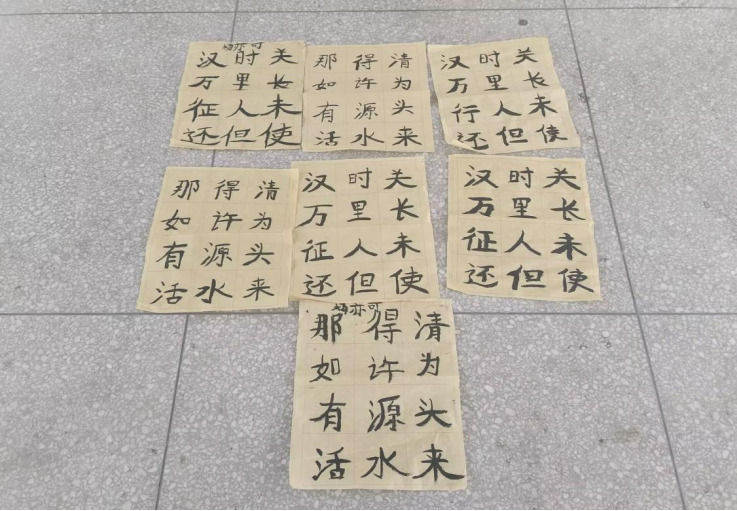 汉时关
万里长
征人未
还但使
那得清
如许为
有源头
活水来
汉时关
万里长
行人未
还但使
那得清
如许为
有源头
活水来
汉时关
万里长
征人未
还但使
汉时关
万里长
征人未
还但使
亦可
那得清
如许为
有源头
活水来